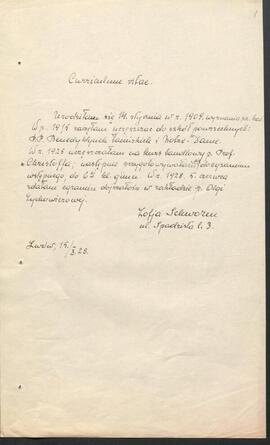 1
Curriculum vitae.
Urodziłam się 14. stycznia w r. 1909, wyznania
W r. 1915 zaczęłam uczęszczać do szkół powszechnych:
P.P. Benedyktynek łacińskich i "Notre-Dame.
W r. 1925 uczęszczałam na kurs handlowy p. Prof.
Christoffa, następnie do egzaminu
wstępnego do kl. gimn. W r. 1928. 5. czerwca
zdałam egzamin dojrzałości w zakładzie p. Olgi
Zofja Schwarzu
ul. Spadzista l. 3.
Lwów, 15.